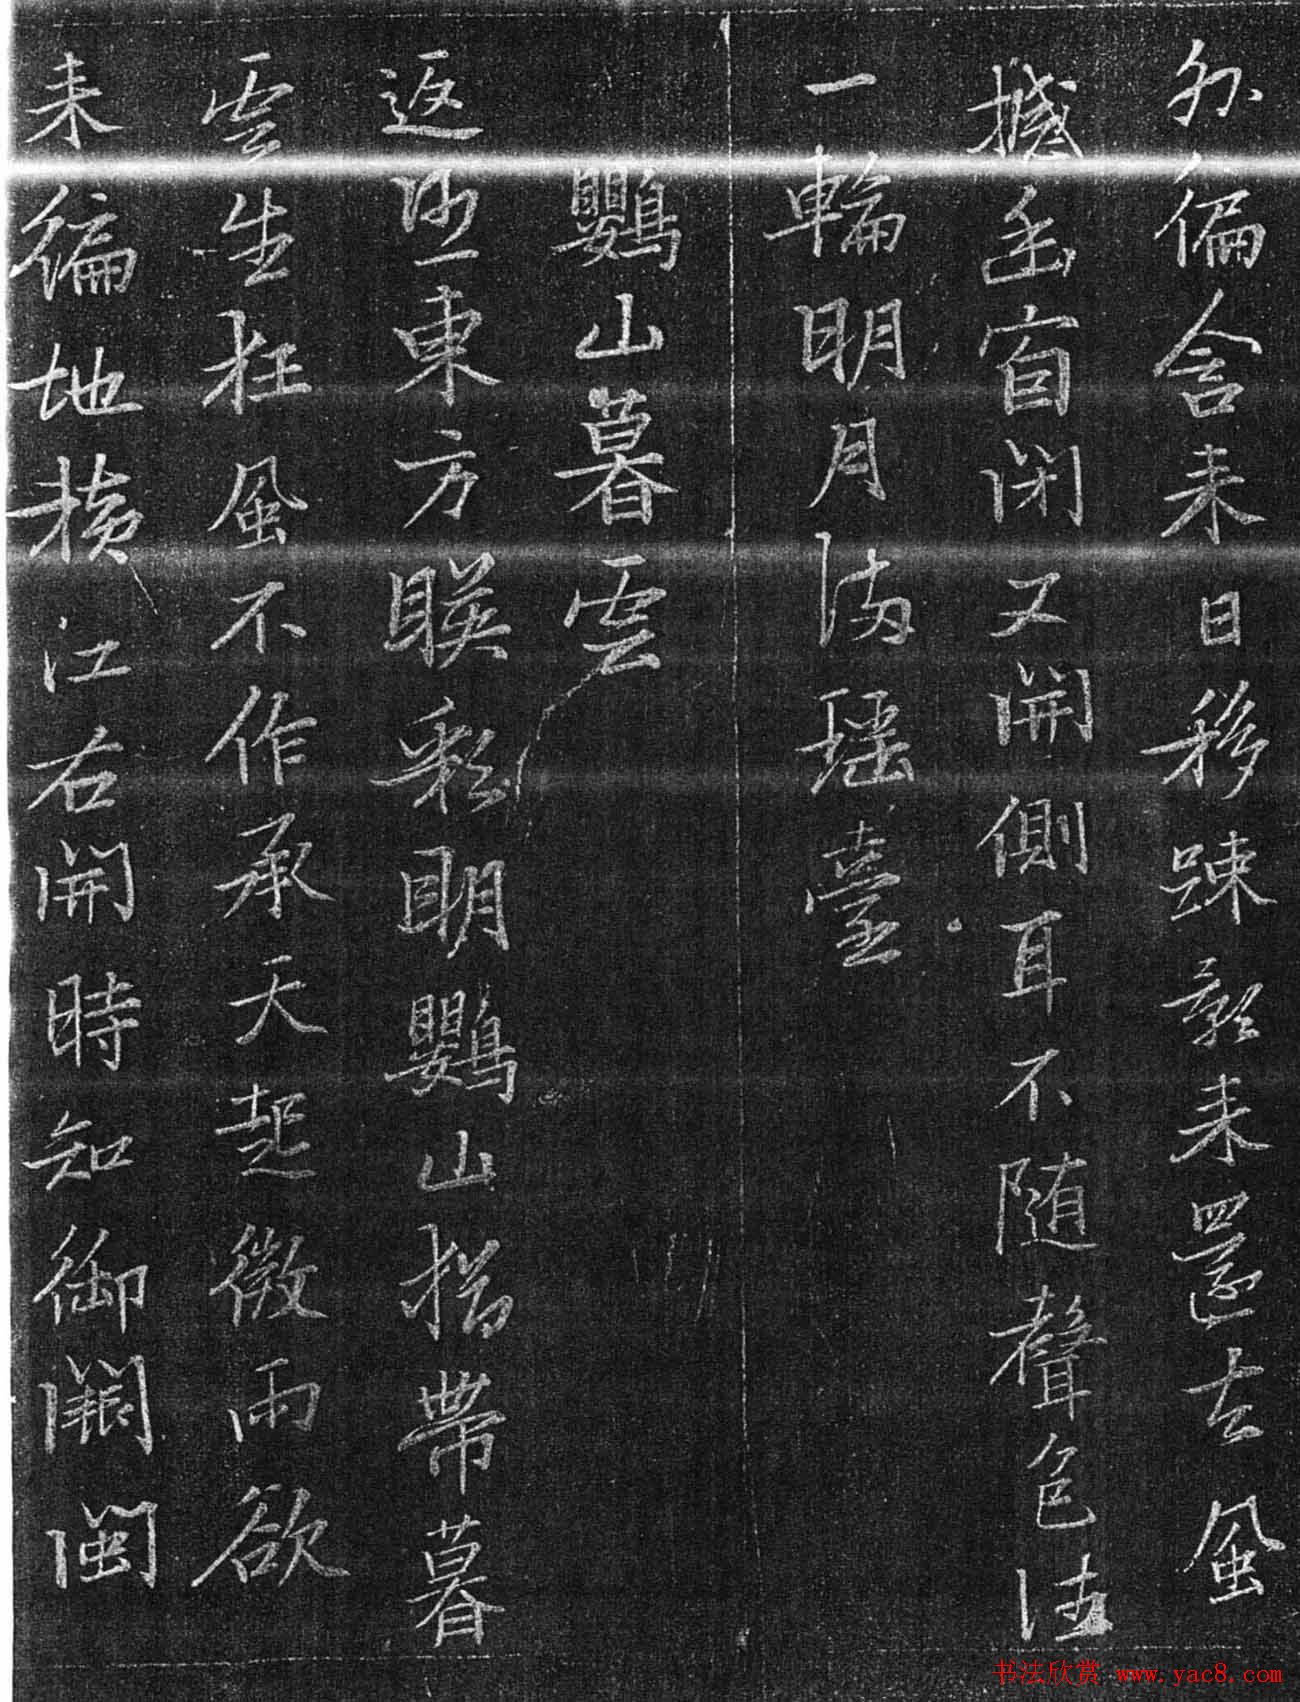 外偏含来日移踈影来還去風
撼幽窗闭又開側耳不随聲色法
一輪明月满瑶臺
鸚山暮雲
返照東方暎彩明鸚山揩帶暮
雲生狂風不作承天起微雨欲
来徧地横江右開時知御闕閩
书法欣赏 www.yac8.com